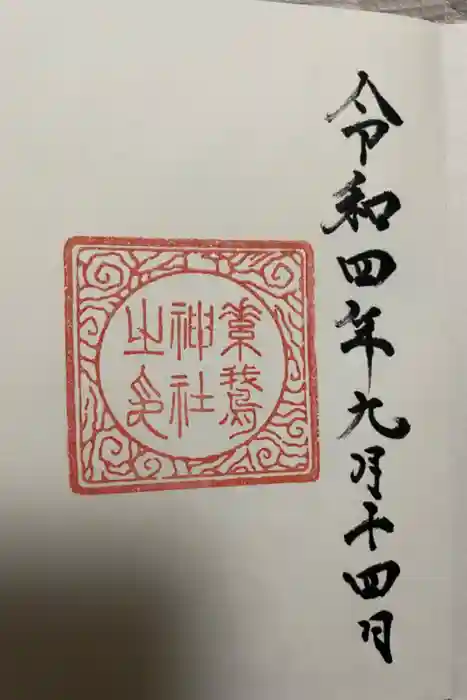 令和四年九月十四日
素鵞
神社
之印